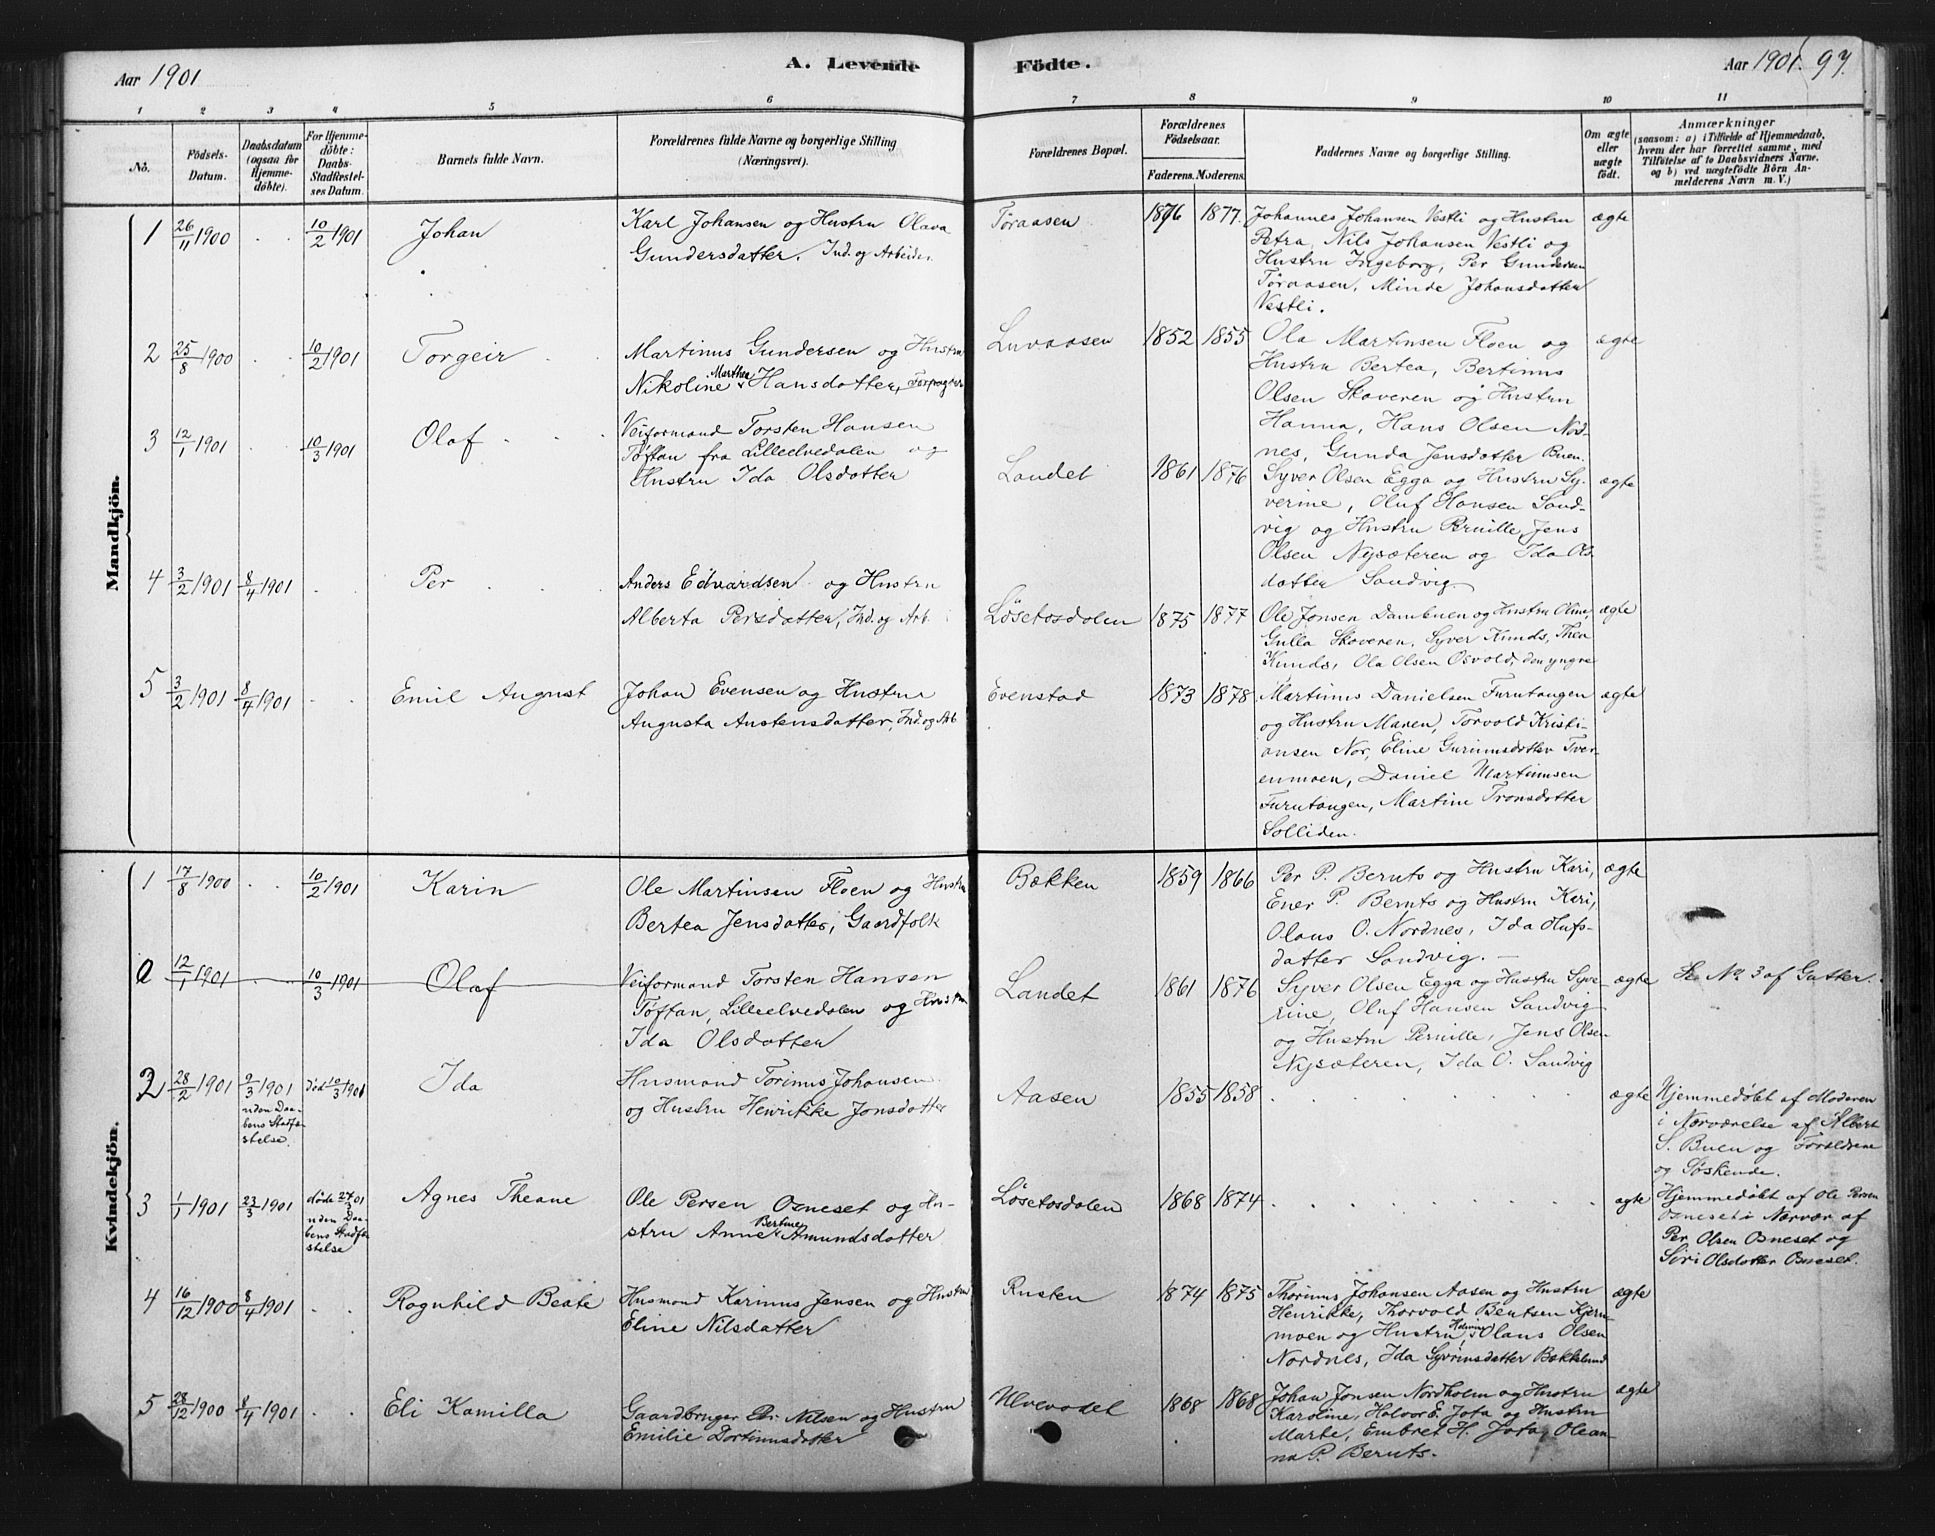 Aar 1901
A. Levende
Födte.
Aar 1901. 97.
1 2 3 4 5 6 7 8 9 10 11
No.
Födsels-
Datum.
Daabsdatum
(ogsaa for
Hjemme-
döbte).
For Hjemme-
döbte:
Daabs-
Stadfæstel-
ses Datum.
Barnets fulde Navn.
Forældrenes fulde Navne og borgerlige Stilling
(Næringsvei).
Forældrenes Bopæl.
Forældrenes
Födselsaar.
Faderens. Moderens.
Faddernes Navne og borgerlige Stilling.
Om ægte
eller
uægte
födt.
Anmærkninger
(saasom: a) i Tilfælde af Hjemmedaab,
hvem der har forrettet samme, med
Tilföielse af to Daabsvidners Navne,
og b) ved uægtefödte Börn An-
melderens Navn m. V.)
Mandkjön.
1 26/11 1900 . . 10/2 1901 Johan
Karl Johansen og Hustru Olava
Gundersdatter. Ind. og Arbeider
Töraasen 1876 1877.
Johannes Johansen Vestli og Hustru
Petra, Nils Johansen Vestli og
Hustru Ingeborg, Per Gundersen
Töraasen, Minde Johansdatter
Vestli.
ægte
2 25/8 1900 . . 10/2 1901 Torgeir
Martinus Gundersen og Hustru
Nikoline Marthea Hansdatter, Forpagter
Luvaasen 1852 1855
Ola Martinsen Floen og
Hustru Bertea, Bertinus
Olsen Skoveren og Hustru
Hanna, Hans Olsen Nord-
nes, Gunda Jensdatter Buen.
ægte
3 12/1 1901 . . 10/3 1901 Olaf
Veiformand Torsten Hansen
Töftan fra Lilleelvedalen og
Hustru Ida Olsdatter
Landet 1861 1876
Syver Olsen Egga og Hustru Sy-
verine, Oluf Hansen Sand-
vig og Hustru Pernille, Jens
Olsen Nysæteren og Ida Ols-
datter Sandvig.
ægte
4 3/2 1901 8/4 1901 . Per
Anders Edvardsen og Hustru
Alberta Persdatter, Ind. og Arb.
Løsetosdalen 1875 1877
Ole Jonsen Dambuen og Hustru Oline,
Gulla Skoveren, Syver Kunds, Thea
Kunds, Ola Olsen Osvold, den yngre
ægte
5 3/2 1901 8/4 1901 . . Emil August
Johan Evensen og Hustru
Augusta Austensdatter, Ind. og Arb
Evenstad 1873 1878
Martinus Danielsen Furutangen
og Hustru Maren, Torvold Kristi-
ansen Nor, Eline Gurinusdatter Tver-
enmoen, Daniel Martinusen
Furutangen, Martine Tronsdatter
Solliden.
ægte
Kvindekjön.
1 17/8 1900 . . 10/2 1901 Karin
Ole Martinsen Floen og Hustru
Bertea Jensdatter, Gaardfolk
Bækken 1859 1866
Per P. Beruts og Hustru Kari,
Ener P. Beruts og Hustru Kari,
Olaus O. Nordnes, Ida
datter Sandvig. —
ægte
0 12/1 1901 10/3 1901 Olaf
Veiformand Torsten Hansen
Töftan, Lilleelvedalen og Hustru
Ida Olsdatter
Landet 1861 1876
Syver Olsen Egga og Hustru Syve-
rine, Oluf Hansen Sandvig
og Hustru Pernille, Jens Olsen
Nysæteren, Ida O. Sandvig
ægte
Se No 3 af Gutter.
2 28/2 1901 9/3 1901 död 10/3 1901 Ida
uden Daa-
bens Stadfæ-
stelse.
Husmand Torinus Johansen
og Hustru Henrikke Jonsdatter
Aasen 1855 1858
ægte
Hjemmedöbt af Moderen
i Nærværelse af Albert
S. Buen og Forældrene
og Söskende.
3 1/1 1901 23/3 1901 döde 27/3 01 Agnes Theane
uden Daa-
bens Stadfæ-
stelse
Ole Persen Ozneset og Hu-
stru Anne Bertine Amundsdatter
Løsetosdalen 1868 1874
ægte
Hjemmedöbt af Ole Persen
Ozneset i Nærvær af
Per Olsen Ozneset og
Siri Olsdatter Ozneset.
4 16/12 1900 8/4 1901 . . Ragnhild Beate
Husmand Karinus Jensen og Hustru
Eline Nilsdatter
Rusten 1874 1875
Thorinus Johansen Aasen og Hustru
Henrikke, Thorvold Bentsen Kjern-
moen og Hustru, Olaus Olsen
Nordnes, Ida Syvrinsdatter Bækkelund
ægte
5 28/12 1900 8/4 1901 . . Eli Kamilla
Gaardbruger Per Nilsen og Hustru
Emilie Dortinusdatter
Ulvevadet 1868 1868
Johan Jonsen Nordholm og Hustru
Karoline, Halvor E. Jota og Hustru
Marte, Embret H. Jota, Olean-
na P. Beruts.
ægte